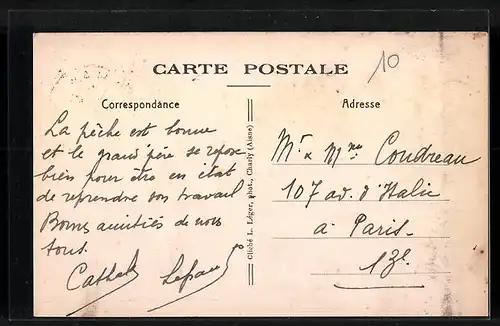 10
CARTE POSTALE
Correspondance
Adresse
La pêche est bonne
et le grand père se repose
bien pour être en état
de reprendre son travail
Bonnes amitiés de nous
tous.
Cliché L. Léger, phot., Charly (Aisne)
Mr & Mme Coudreau
107 av. d'Italie
à Paris.
13e